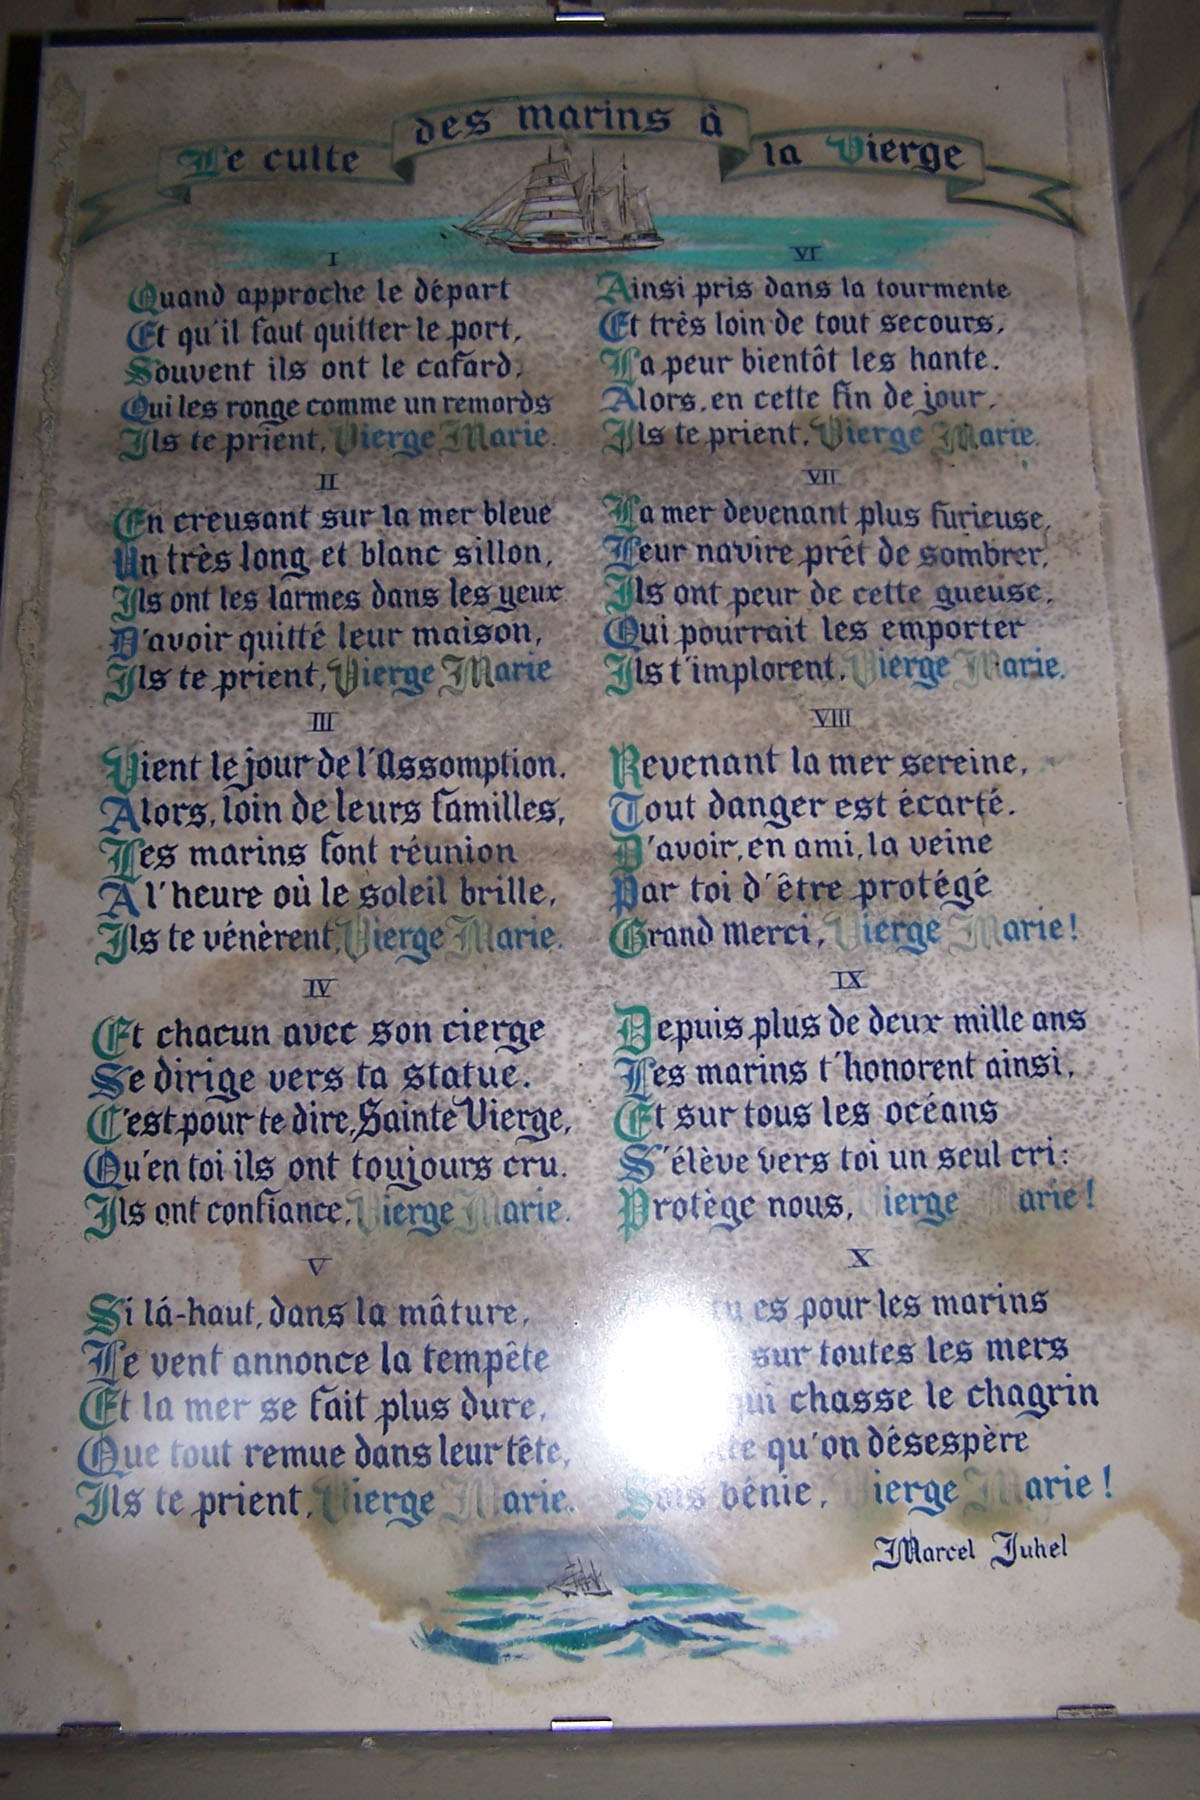 Le culte des marins à la Vierge
I
Quand approche le départ
Et qu'il faut quitter le port,
Souvent ils ont le cafard,
Qui les ronge comme un remords
Ils te prient, Vierge Marie.
II
En creusant sur la mer bleue
Un très long et blanc sillon,
Ils ont les larmes dans les yeux
D'avoir quitté leur maison,
Ils te prient, Vierge Marie
III
Vient le jour de l'Assomption.
Alors, loin de leurs familles,
Les marins font réunion
A l'heure où le soleil brille,
Ils te vénèrent, Vierge Marie.
IV
Et chacun avec son cierge
Se dirige vers ta statue.
C'est pour te dire, Sainte Vierge,
Qu'en toi ils ont toujours cru.
Ils ont confiance, Vierge Marie.
V
Si là-haut, dans la mâture,
Le vent annonce la tempête
Et la mer se fait plus dure,
Que tout remue dans leur tête,
Ils te prient, Vierge Marie.
VI
Ainsi pris dans la tourmente
Et très loin de tout secours,
La peur bientôt les hante.
Alors, en cette fin de jour,
Ils te prient, Vierge Marie.
VII
La mer devenant plus furieuse,
Leur navire prêt de sombrer,
Ils ont peur de cette gueuse,
Qui pourrait les emporter
Ils t'implorent, Vierge Marie.
VIII
Revenant la mer sereine,
Tout danger est écarté.
D'avoir, en ami, la veine
Par toi d'être protégé
Grand merci, Vierge Marie!
IX
Depuis plus de deux mille ans
Les marins t'honorent ainsi,
Et sur tous les océans
S'élève vers toi un seul cri:
Protège nous, Vierge Marie!
X
tu es pour les marins
sur toutes les mers
qui chasse le chagrin
qu'on désespère
Sois bénie, Vierge Marie!
Marcel Juhel